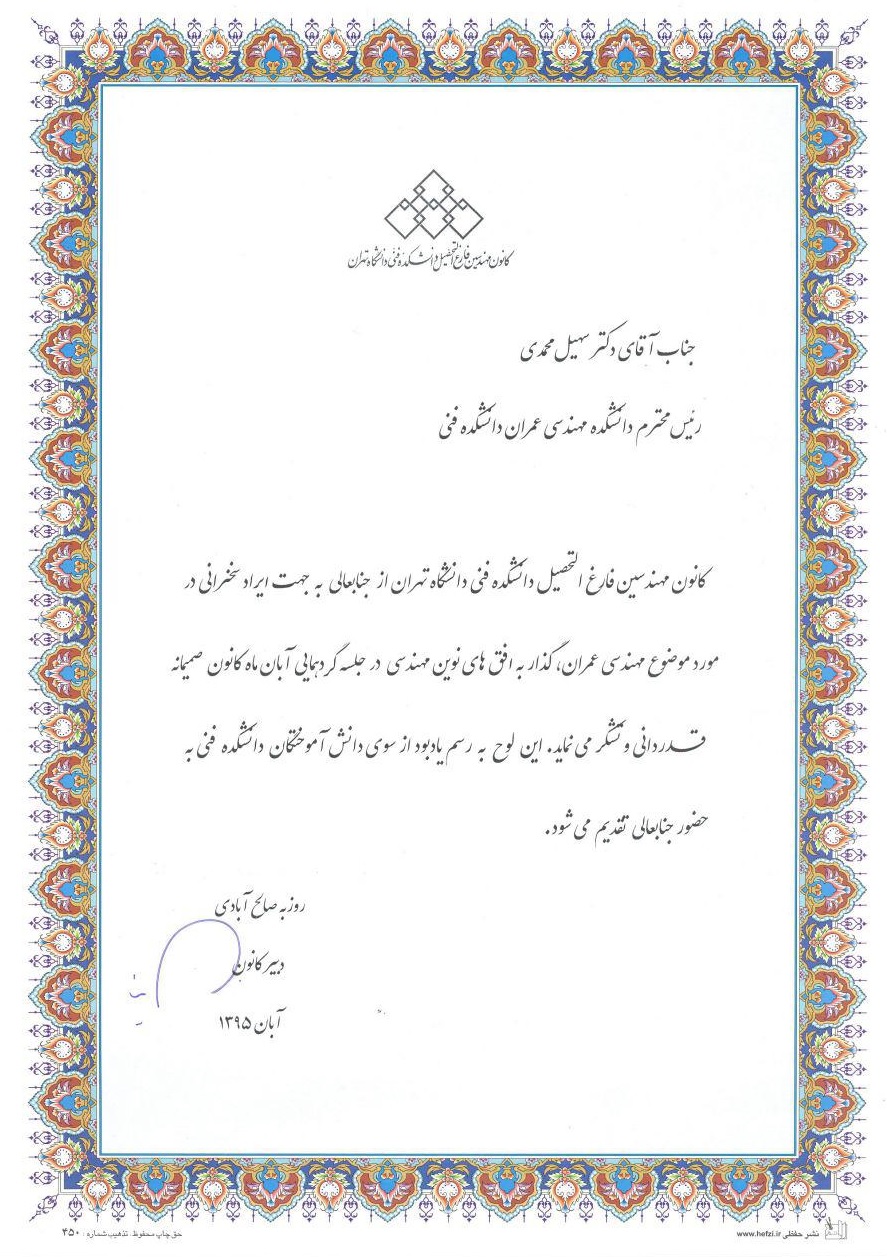 کانون مهندسین فارغ التحصیل دانشکده فنی دانشگاه تهران
جناب آقای دکتر سهیل محمدی
رئیس محترم دانشکده مهندسی عمران دانشکده فنی
کانون مهندسین فارغ التحصیل دانشکده فنی دانشگاه تهران از جنابعالی به جهت ایراد سخنرانی در
مورد موضوع مهندسی عمران، گذار به افق های نوین مهندسی در جلسه گردهمایی آبان ماه کانون صمیمانه
قدردانی و تشکر می نماید. این لوح به رسم یادبود از سوی دانش آموختگان دانشکده فنی به
حضور جنابعالی تقدیم می شود.
روزبه صالح آبادی
دبیر کانون
آبان ۱۳۹۵
نشر حفظی www.hefzi.ir
حق چاپ محفوظ. تذهیب شماره : ۴۵۰